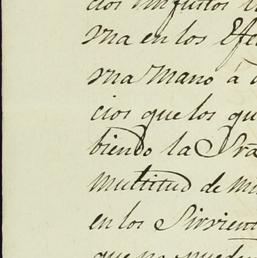 cios impulsos
ma en los Efe
ma mano á
cios que los qu
biendo la Gra
multitud de mi
en los Sirvient
que no pueden